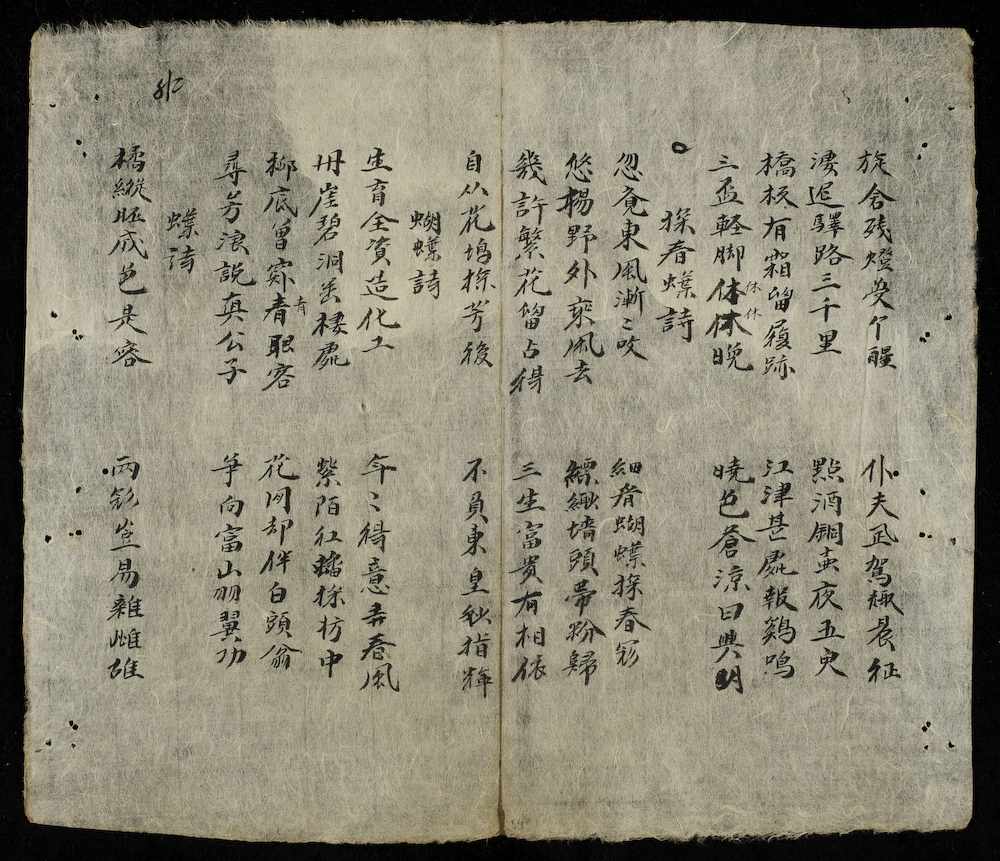 旋舍残燈受个醒 仆夫夙駕趣晨征
凄迟驛路三千里 點酒銅壺夜五更
橋板有霜留履跡 江津甚處報鷄鳴
三盃軽脚休休晩 曉色蒼涼日興明
休 休
探春蝶詩
忽覓東風漸〻吹 細看蝴蝶探春
悠楊野外乘風去 縹緲墻頭帶粉歸
幾許繁花留占得 三生富贵有相依
自从花塢探芳後 不負東皇秋指揮
蝴蝶詩
生育全資造化工 年〻得意弄春風
丹崖碧洞棲處 紫陌红探枋中
柳底曾窺青眼客 花间却伴白頭翁
青
尋芳浪説真公子 爭向富山羽翼功
蝶诗
橘縱胚成色是容 兩岂易雜雌雄